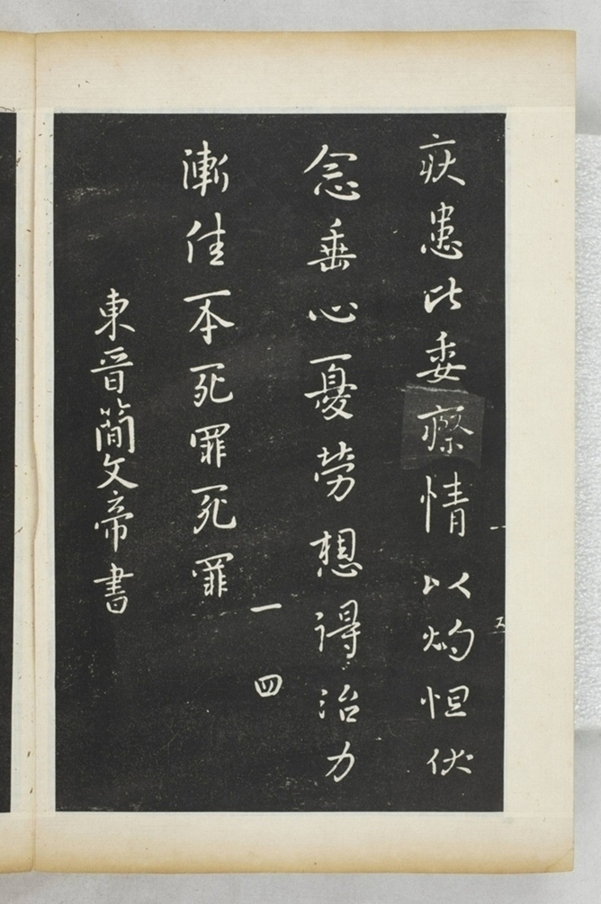 疾患比委瘵情以灼怛伏
念垂心憂勞想得治力
一四
漸佳一本死罪死罪
東晉簡文帝書